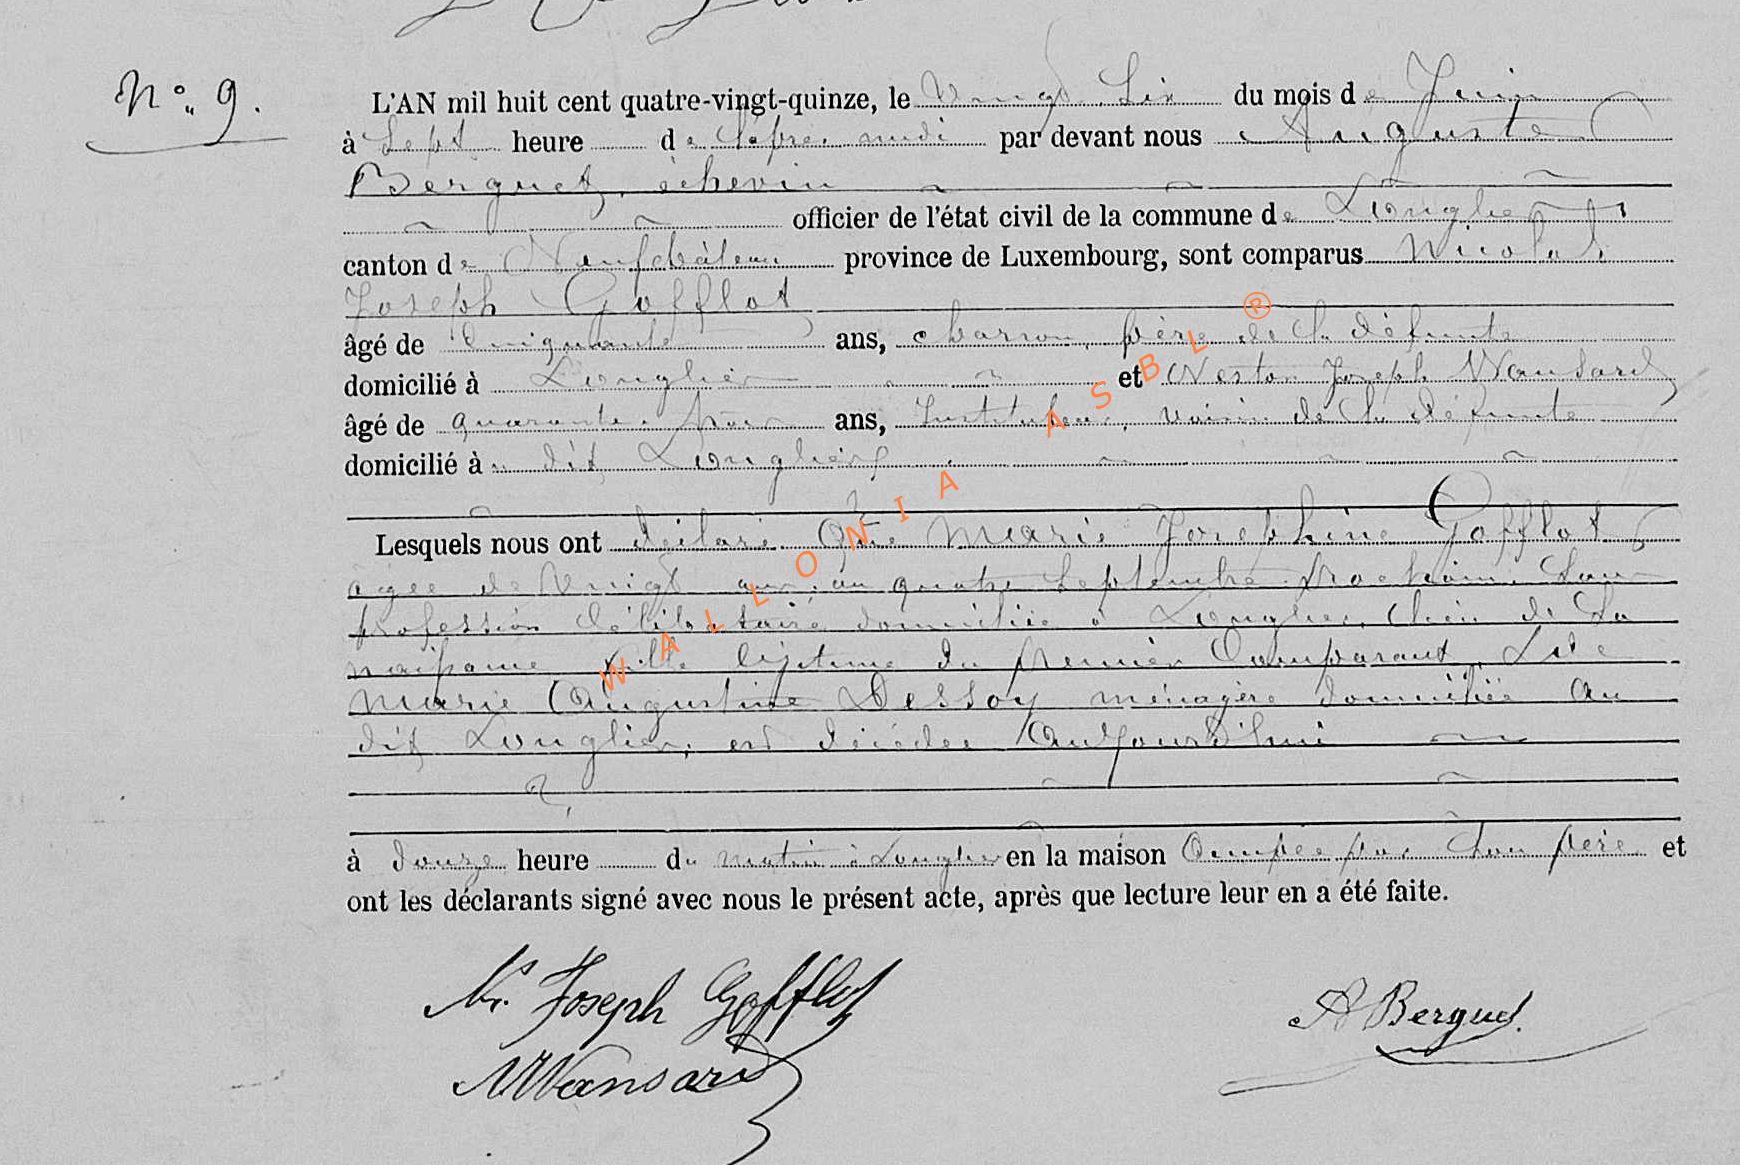 N° 9.
L'AN mil huit cent quatre-vingt-quinze, le Vingt Six du mois de Juin
à Sept heure de l'après midi par devant nous Auguste
Berguet, échevin
officier de l'état civil de la commune de Longlier
canton de Neufchâteau province de Luxembourg, sont comparus Nicolas
Joseph Gofflot
âgé de cinquante ans, charron, père de la défunte
domicilié à Longlier et Nestor Joseph Wansard
âgé de quarante trois ans, Instituteur, voisin de la défunte
domicilié à dit Longlier
Lesquels nous ont déclaré que Marie Josephine Gofflot
agée de vingt ans au quatre Septembre prochain, San
profession célibataire domiciliée à Longlier, lieu de Sa
naissance fille légitime du premier Comparant, et de
Marie Augustine Dessoy ménagère domiciliée au
dit Longlier, est décédée Aujourd'hui
à douze heure du matin à Longlier en la maison Occupée par Son père et
ont les déclarants signé avec nous le présent acte, après que lecture leur en a été faite.
N. Joseph Gofflot
A Berguet.
NWansard
WALLONIA ASBL ®